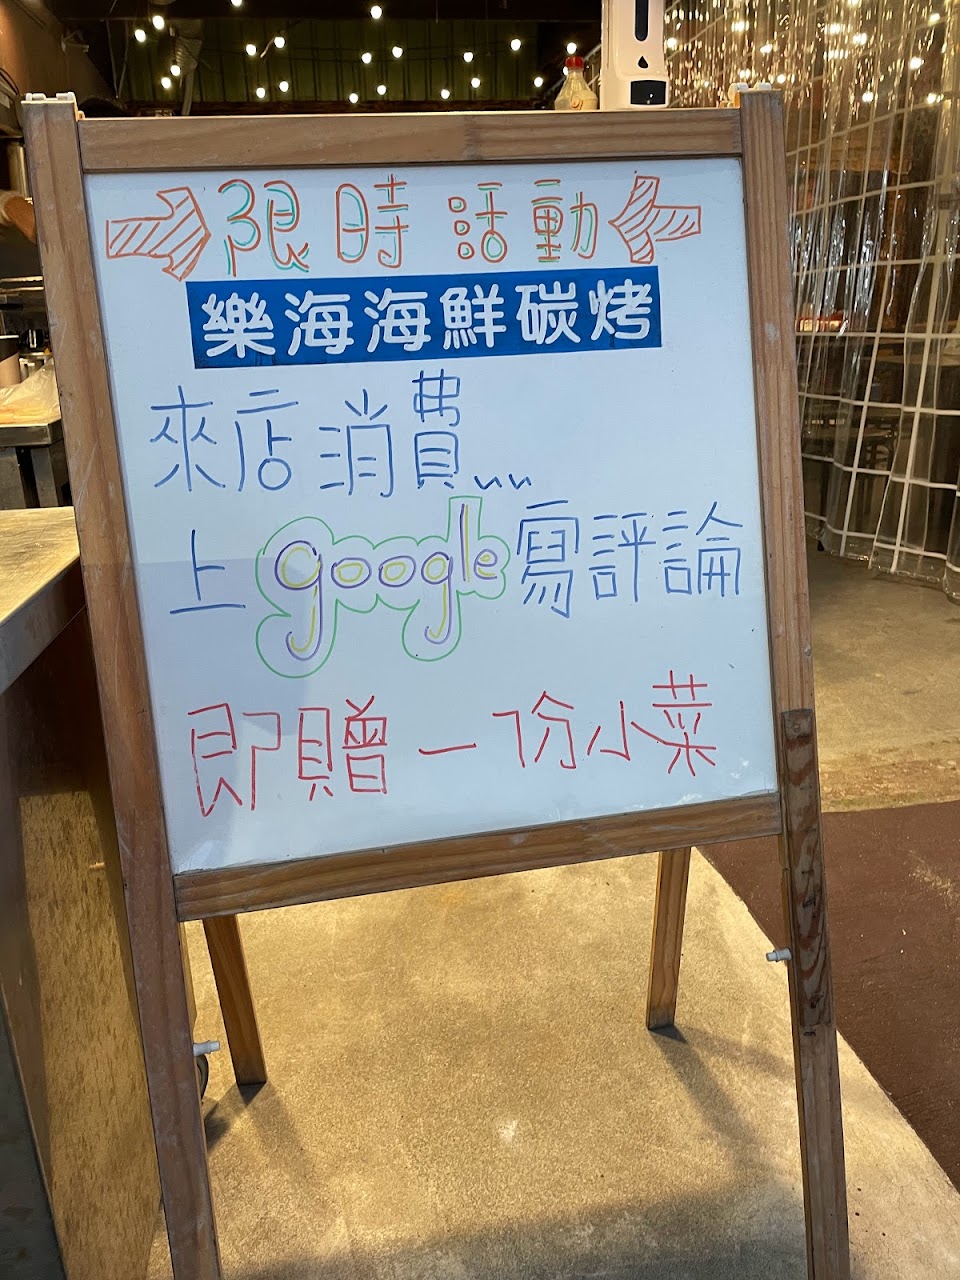 限時活動
樂海海鮮碳烤
來店消費
上google寫評論
即贈一份小菜